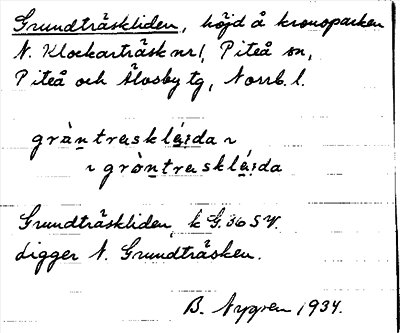 Grundträskliden, höjd å kronoparken
N. Klockarträsk nr 1, Piteå sn,
Piteå och Älvsby tg, Norrb. l.
gràntrasklá:ida ~
~ gròntrasklá:ida
Grundträskliden, k G. 36 S V.
Ligger N. Grundträsken.
B. Nygren 1934.